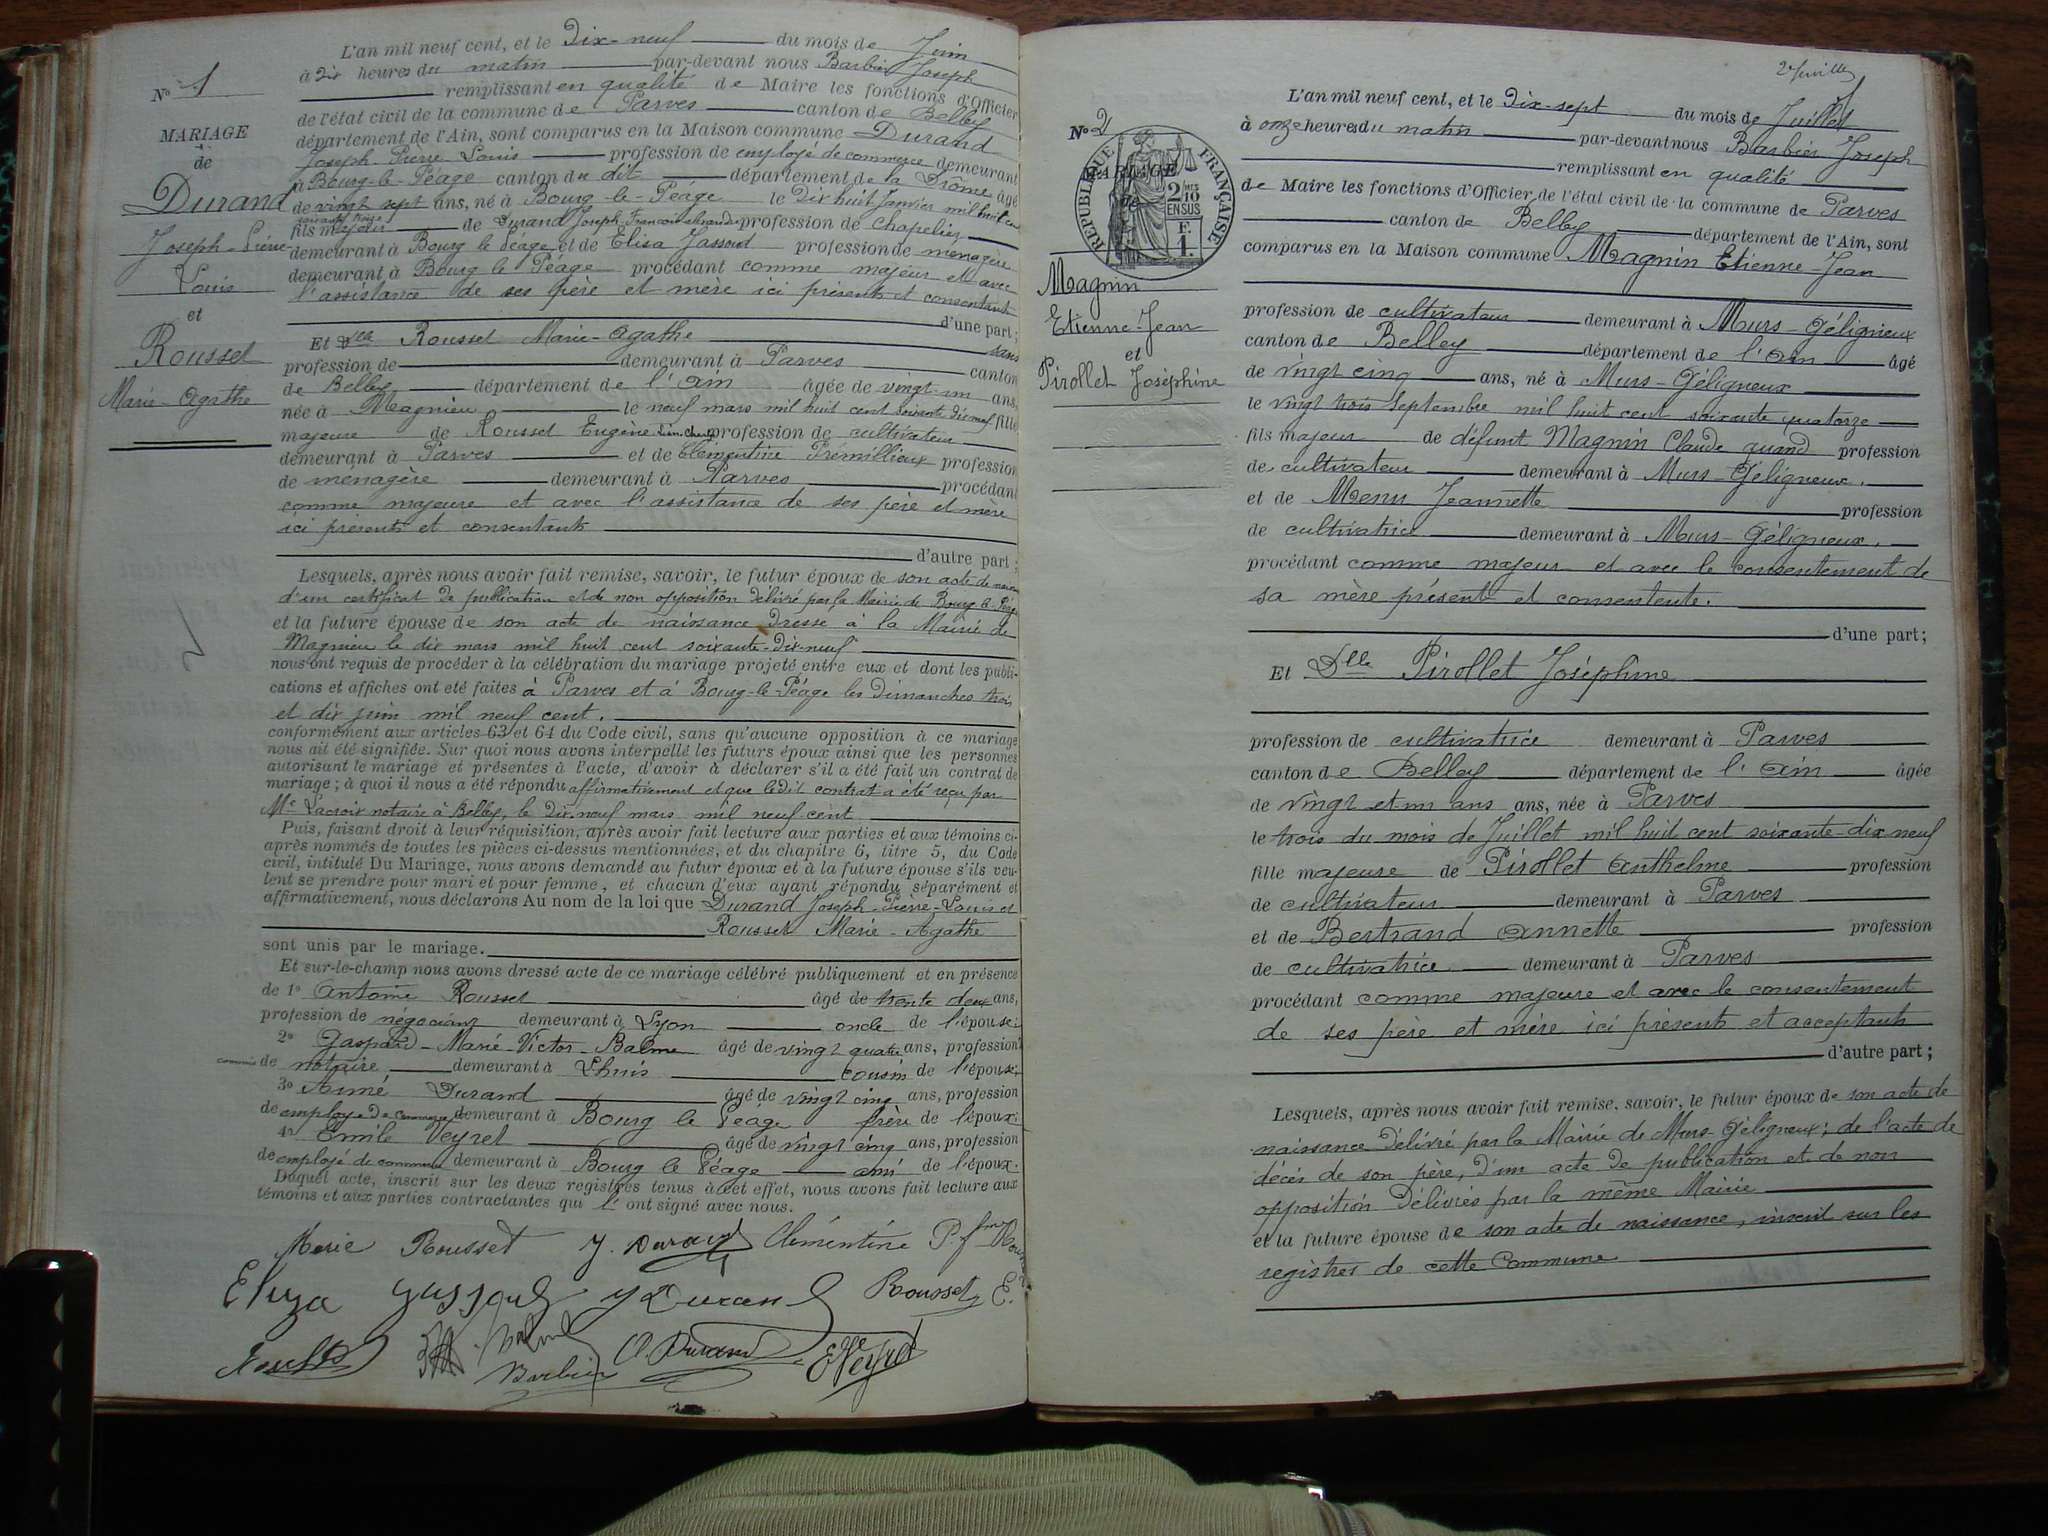 L'an mil neuf cent, et le Dix-neuf du mois de Juin
à dix heures du matin par-devant nous Barbier Joseph
remplissant en qualité de Maire les fonctions d'Officier
de l'état civil de la commune de Parves canton de Belley
département de l'Ain, sont comparus en la Maison commune Durand
Joseph Pierre Louis profession de employé de commerce demeurant
à Bourg-le-Péage canton du dit département de la Drôme âgé
de vingt sept ans, né à Bourg-le-Péage le Dix huit Janvier mil huit cent
soixante treize
fils majeur de Durand Joseph François profession de chapelier
demeurant à Bourg le Péage et de Elisa Jassoud profession de ménagère
demeurant à Bourg le Péage procédant comme majeur et avec
l'assistance de ses père et mère ici présents et consentant
d'une part;
Et Dlle Rousset Marie-Agathe sans
profession de demeurant à Parves canton
de Belley département de l'Ain âgée de vingt-un ans,
née à Magnieu le neuf mars mil huit cent soixante dix neuf fille
majeure de Rousset Eugène profession de cultivateur
demeurant à Parves et de Clémentine Prémillieux profession
de ménagère demeurant à Parves procédant
comme majeure et avec l'assistance de ses père et mère
ici présents et consentants
d'autre part;
Lesquels, après nous avoir fait remise, savoir, le futur époux de son acte de naissance
d'un certificat de publication et de non opposition délivré par la Mairie de Bourg-le-Péage
et la future épouse de son acte de naissance dressé à la Mairie de
Magnieu le dix mars mil huit cent soixante-dix-neuf
nous ont requis de procéder à la célébration du mariage projeté entre eux et dont les publi-
cations et affiches ont été faites à Parves et à Bourg-le-Péage les Dimanches trois
et dix juin mil neuf cent.
conformément aux articles 63 et 64 du Code civil, sans qu'aucune opposition à ce mariage
nous ait été signifiée. Sur quoi nous avons interpellé les futurs époux ainsi que les personnes
autorisant le mariage et présentes à l'acte, d'avoir à déclarer s'il a été fait un contrat de
mariage; à quoi il nous a été répondu affirmativement et que ledit contrat a été reçu par
Me Lacroix notaire à Belley, le Dix-neuf mars mil neuf cent
Puis, faisant droit à leur réquisition, après avoir fait lecture aux parties et aux témoins ci-
après nommés de toutes les pièces ci-dessus mentionnées, et du chapitre 6, titre 5, du Code
civil, intitulé Du Mariage, nous avons demandé au futur époux et à la future épouse s'ils veu-
lent se prendre pour mari et pour femme, et chacun d'eux ayant répondu séparément et
affirmativement, nous déclarons Au nom de la loi que Durand Joseph-Pierre-Louis et
Rousset Marie-Agathe
sont unis par le mariage.
Et sur-le-champ nous avons dressé acte de ce mariage célébré publiquement et en présence
de 1° Antoine Rousset âgé de trente deux ans,
profession de négociant demeurant à Lyon oncle de l'épouse;
2° Gaspard-Marie-Victor-Balme âgé de vingt quatre ans, profession
commis de notaire demeurant à Lhuis cousin de l'épouse;
3° Aimé Durand âgé de vingt cinq ans, profession
de employé de commerce demeurant à Bourg le Péage frère de l'époux;
4° Emile Veyret âgé de vingt cinq ans, profession
de employé de commerce demeurant à Bourg le Péage ami de l'époux.
Duquel acte, inscrit sur les deux registres tenus à cet effet, nous avons fait lecture aux
témoins et aux parties contractantes qui l' ont signé avec nous.
Marie Rousset J. Durand Clémentine
Eliza Jassoud J Durand Rousset E.
Barbier A. Durand E Veyret
N° 1
MARIAGE
de
Durand
Joseph-Pierre-
Louis
et
Rousset
Marie-Agathe
L'an mil neuf cent, et le Dix-sept du mois de Juillet
à onze heures du matin par-devant nous Barbier Joseph
remplissant en qualité
de Maire les fonctions d'Officier de l'état civil de la commune de Parves
canton de Belley département de l'Ain, sont
comparus en la Maison commune Magnin Etienne-Jean
profession de cultivateur demeurant à Murs-Géligneux
canton de Belley département de l'Ain âgé
de vingt cinq ans, né à Murs-Géligneux
le vingt trois Septembre mil huit cent soixante quatorze
fils majeur de défunt Magnin Claude quand profession
de cultivateur demeurant à Murs-Géligneux.
et de Menu Jeannette profession
de cultivatrice demeurant à Murs-Géligneux.
procédant comme majeur et avec le consentement de
sa mère présent et consentente.
d'une part;
Et Dlle Pirollet Joséphine
profession de cultivatrice demeurant à Parves
canton de Belley département de l'Ain âgée
de vingt-et-un ans ans, née à Parves
le trois du mois de Juillet mil huit cent soixante-dix neuf
fille majeure de Pirollet Anthelme profession
de cultivateur demeurant à Parves
et de Bertrand Annette profession
de cultivatrice demeurant à Parves
procédant comme majeure et avec le consentement
de ses père et mère ici présents et acceptants
d'autre part;
Lesquels, après nous avoir fait remise, savoir, le futur époux de son acte de
naissance délivré par la Mairie de Murs-Géligneux; de l'acte de
décès de son père, d'un acte de publication et de non
opposition délivrés par la même Mairie
et la future épouse de son acte de naissance, inscrit sur les
registres de cette Commune
N° 2
MARIAGE
de
REPUBLIQUE FRANÇAISE
2/10 EN SUS
F.
1.
Magnin
Etienne-Jean
et
Pirollet Joséphine